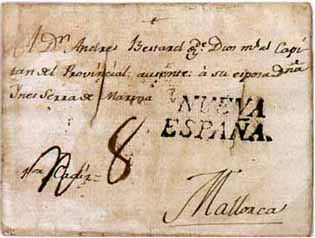 A Dn Andres Bestard gde Dios ms as Capi
tan del Provincial: ausente: à su esposa Dña
Ines Serra de Marina
NUEVA
ESPAÑA.
por Cadiz=
8
Mallorca